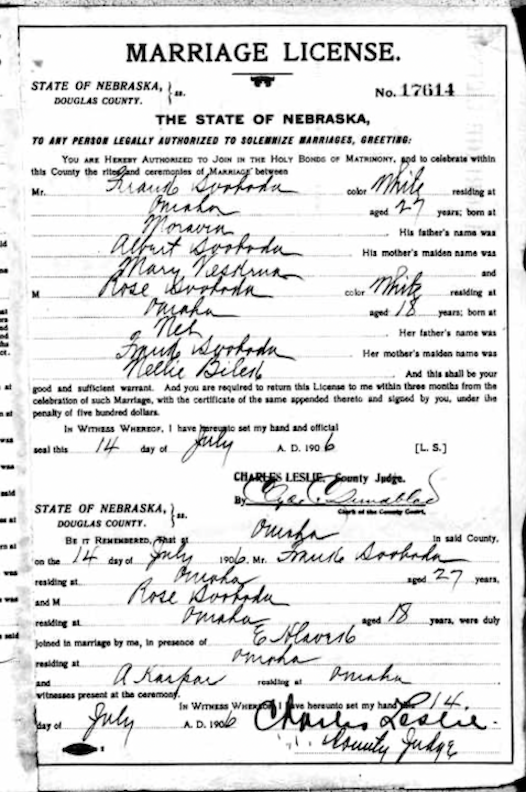 MARRIAGE LICENSE.
STATE OF NEBRASKA, } ss. No. 17614
DOUGLAS COUNTY.
THE STATE OF NEBRASKA,
TO ANY PERSON LEGALLY AUTHORIZED TO SOLEMNIZE MARRIAGES, GREETING:
YOU ARE HEREBY AUTHORIZED TO JOIN IN THE HOLY BONDS OF MATRIMONY, and to celebrate within
this County the rites and ceremonies of MARRIAGE between
Mr. Frank Svoboda color White residing at
Omaha aged 27 years; born at
Moravia His father's name was
Albert Svoboda His mother's maiden name was
Mary and
M Rose Svoboda color White residing at
Omaha aged 18 years; born at
Neb Her father's name was
Frank Svoboda Her mother's maiden name was
Nellie And this shall be your
good and sufficient warrant. And you are required to return this License to me within three months from the
celebration of such Marriage, with the certificate of the same appended thereto and signed by you, under the
penalty of five hundred dollars.
IN WITNESS WHEREOF, I have hereunto set my hand and official
seal this 14 day of July A. D. 1906 [L. S.]
CHARLES LESLIE, County Judge.
By Clyde C.
Clerk of the County Court.
STATE OF NEBRASKA, } ss.
DOUGLAS COUNTY.
BE IT REMEMBERED, That at Omaha in said County,
on the 14 day of July 1906. Mr. Frank Svoboda
residing at Omaha aged 27 years,
and M Rose Svoboda
residing at Omaha aged 18 years, were duly
joined in marriage by me, in presence of E
residing at Omaha
and A Kaspar residing at Omaha
witnesses present at the ceremony.
IN WITNESS WHEREOF, I have hereunto set my hand this 14.
day of July A. D. 1906 Charles Leslie.
County Judge